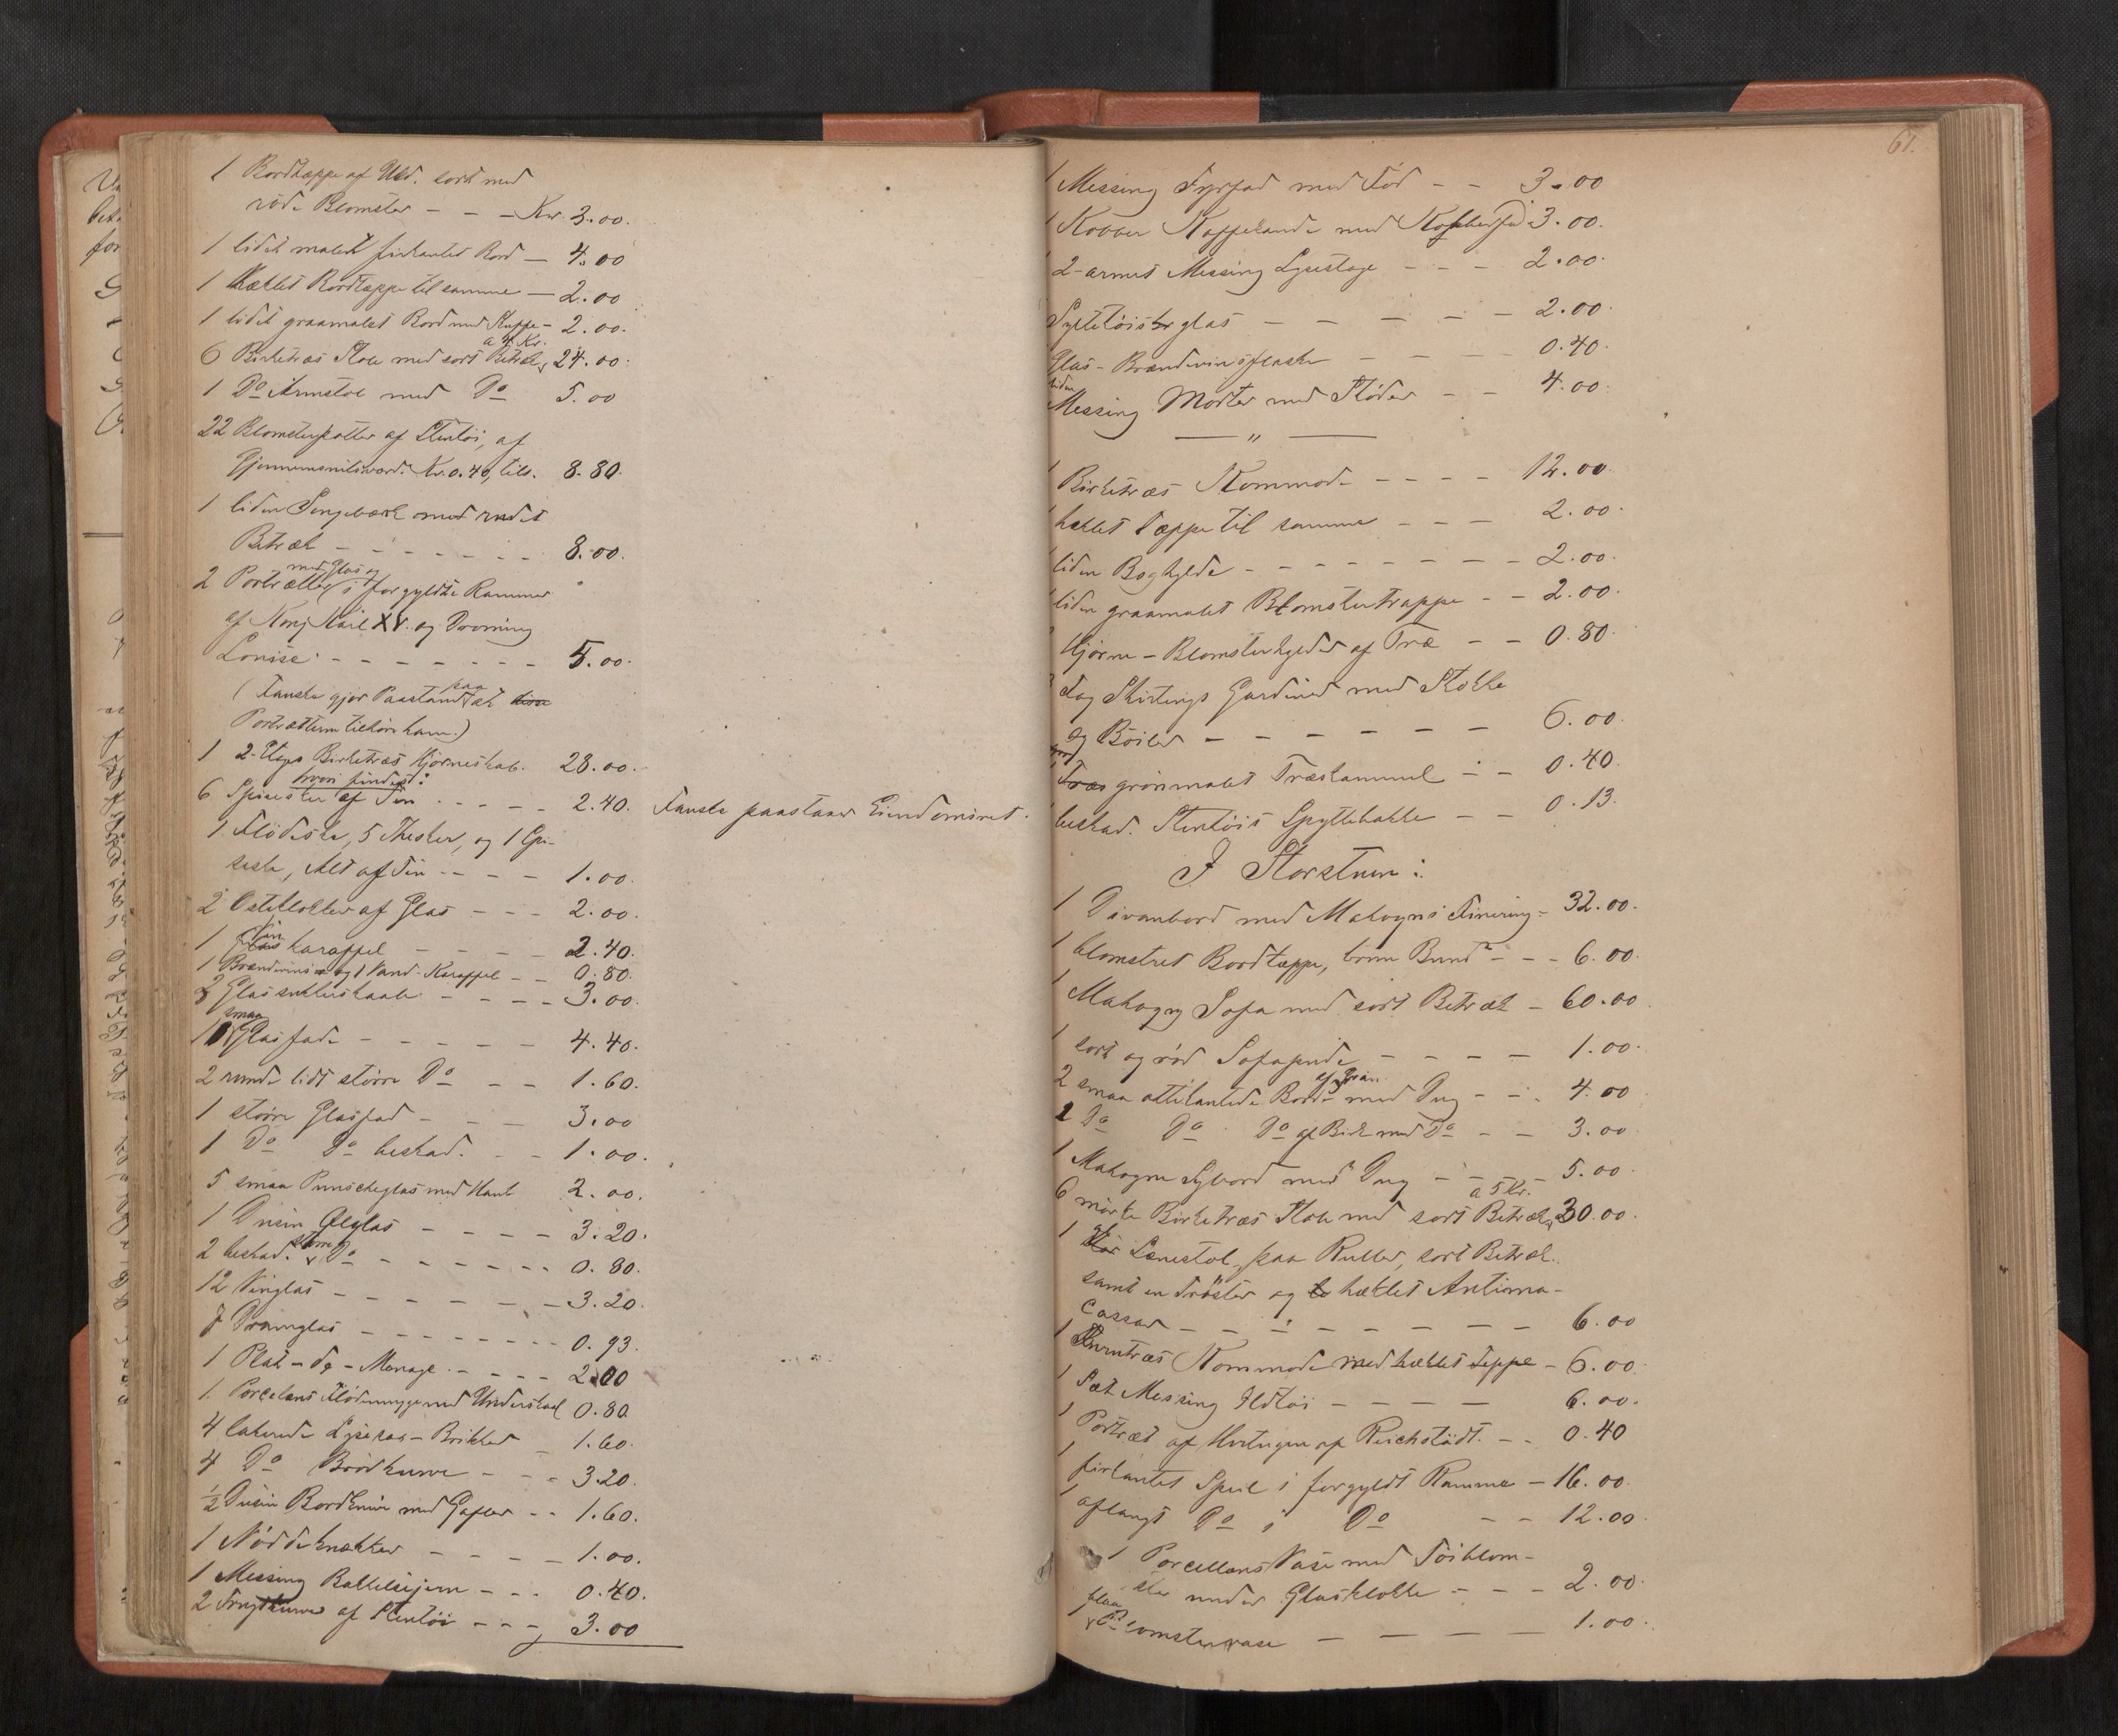 1 Bordtæppe af Uld. sort med
røde Blomster - - - Kr. 3.00.
1 lidet malet firkantet Bord - 4.00
1 Hæklet Bordtæppe til samme - 2.00
1 lidet graamalet Bord med Skuffe - 2.00.
a 4 Kr.
6 Birketræs Stole med sort Betræk, 24.00.
1 Do Armstol med Do 5.00
22 Blomsterpotter af Stentøi, af
Gjennemsnitsværd. Kr. 0.40, tils. 8.80.
1 liden Sengebænk med rødt
Betræk - - - - - - - 8.00.
med Glas og
2 Portrætter i forgyldte Rammer
af Konj Karl XV. og Dronning
Lovise - - - - - - - - 5.00.
paa
(Fauske gjør Paastand at disse
Portrætterne tilhøre ham.)
1 2-Etages Birketræs Hjørneskab. 28.00.
hvori findes:
6 Spiseskeer af Tin - - - - - 2.40. Fauske paastaar Eiendomsret.
1 Flødeske, 5 Theskeer, og 1 Spi-
seske, Alt af Tin - - - - 1.00.
2 Osteklokker af Glas - - - 2.00.
Vin
1 Glas karaffel - - - - 2.40.
1 Brændevins- og 1 Vand-Karaffel - - 0.80.
3 Glassukkerskaale - - - - 3.00.
smaa
11 Glasfade - - - - - 4.40.
2 runde lidt større Do - - 1.60.
1 større Glasfad - - - 3.00
1 Do Do beskad. - - 1.00.
5 smaa Punscheglas med Hank 2.00.
1 Dusin Ølglas - - - - 3.20.
større
2 beskad. Do - - - - - - - 0.80.
12 Vinglas - - - - - - - 3.20.
7 Dramglas - - - - - - - - 0.93.
1 Plat-de-Menage - - - - 2.00
1 Porcelæns Flødemugge med Underskaal 0.80.
4 lakerede Lysesax-Brikker - 1.60.
4 Do Brødkurve - - - 3.20.
½ Dusin Bordknive med Gafler - - 1.60.
1 Nøddeknækker - - - - - 1.00.
1 Messing Bakkelsejern - - - 0.40.
2 Frugtkurve af Stentøi - - - 3.00
61.
1 Messing Fyrfad med Fod - - 3.00
1 Kobber Kaffekande med Kobberfad 3.00.
1 2-armet Messing Lysestage - - - 2.00.
Syltetøis glas - - - - - 2.00.
Glas-Brændevinsflaske - - - - 0.40.
liden
Messing Morter med Støder - - 4.00.
— " —
1 Birketræs Kommode - - - - 12.00.
hæklet Tæppe til samme - - - 2.00.
1 liden Boghylde - - - - - - - - 2.00.
1 liden graamalet Blomstertrappe - - 2.00.
Hjørne-Blomsterhylder af Træ - - 0.80.
Fag Shirtings Gardiner med Stokke
og Bøiler - - - - - - - 6.00.
Træs grønmalet Træskammel - - 0.40.
beskad. Stentøis Spyttebakke - - 0.13.
I Storstuen:
1 Divanbord med Mahogni Finering - 32.00.
1 blomstret Bordtæppe, brun Bund - - - 6.00.
1 Mahogny Sofa med sort Betræk - 60.00
1 sort og rød Sofapude - - - - 1.00.
af Gran
2 smaa ottekantede Borde med Dug - - - 4.00
2 Do Do Do af Birk med Do - - 3.00
1 Mahogni Sybord med Dug - - - - 5.00.
a 5 Kr.
6 mørke Birketræs Stole med sort Betræk, 30.00.
1 stor Lænestol paa Ruller, sort Betræk.
samt en Trøster og hæklet Antima-
cassar - - - - - - - - - 6.00
1 Furutræs Kommode med hæklet Teppe - 6.00.
1 Sæt Messing Ildtøi - - - - - 6.00.
1 Portræt af Hertugen af Reichstadt. - - 0.40
1 firkantet Speil i forgyldt Ramme - 16.00.
1 aflangt Do i Do - - 12.00
1 Porcellæns Vase med Tøiblom-
ster under Glasklokke - - - 2.00.
blaa
1 Blomstervase - - - - - 1.00.